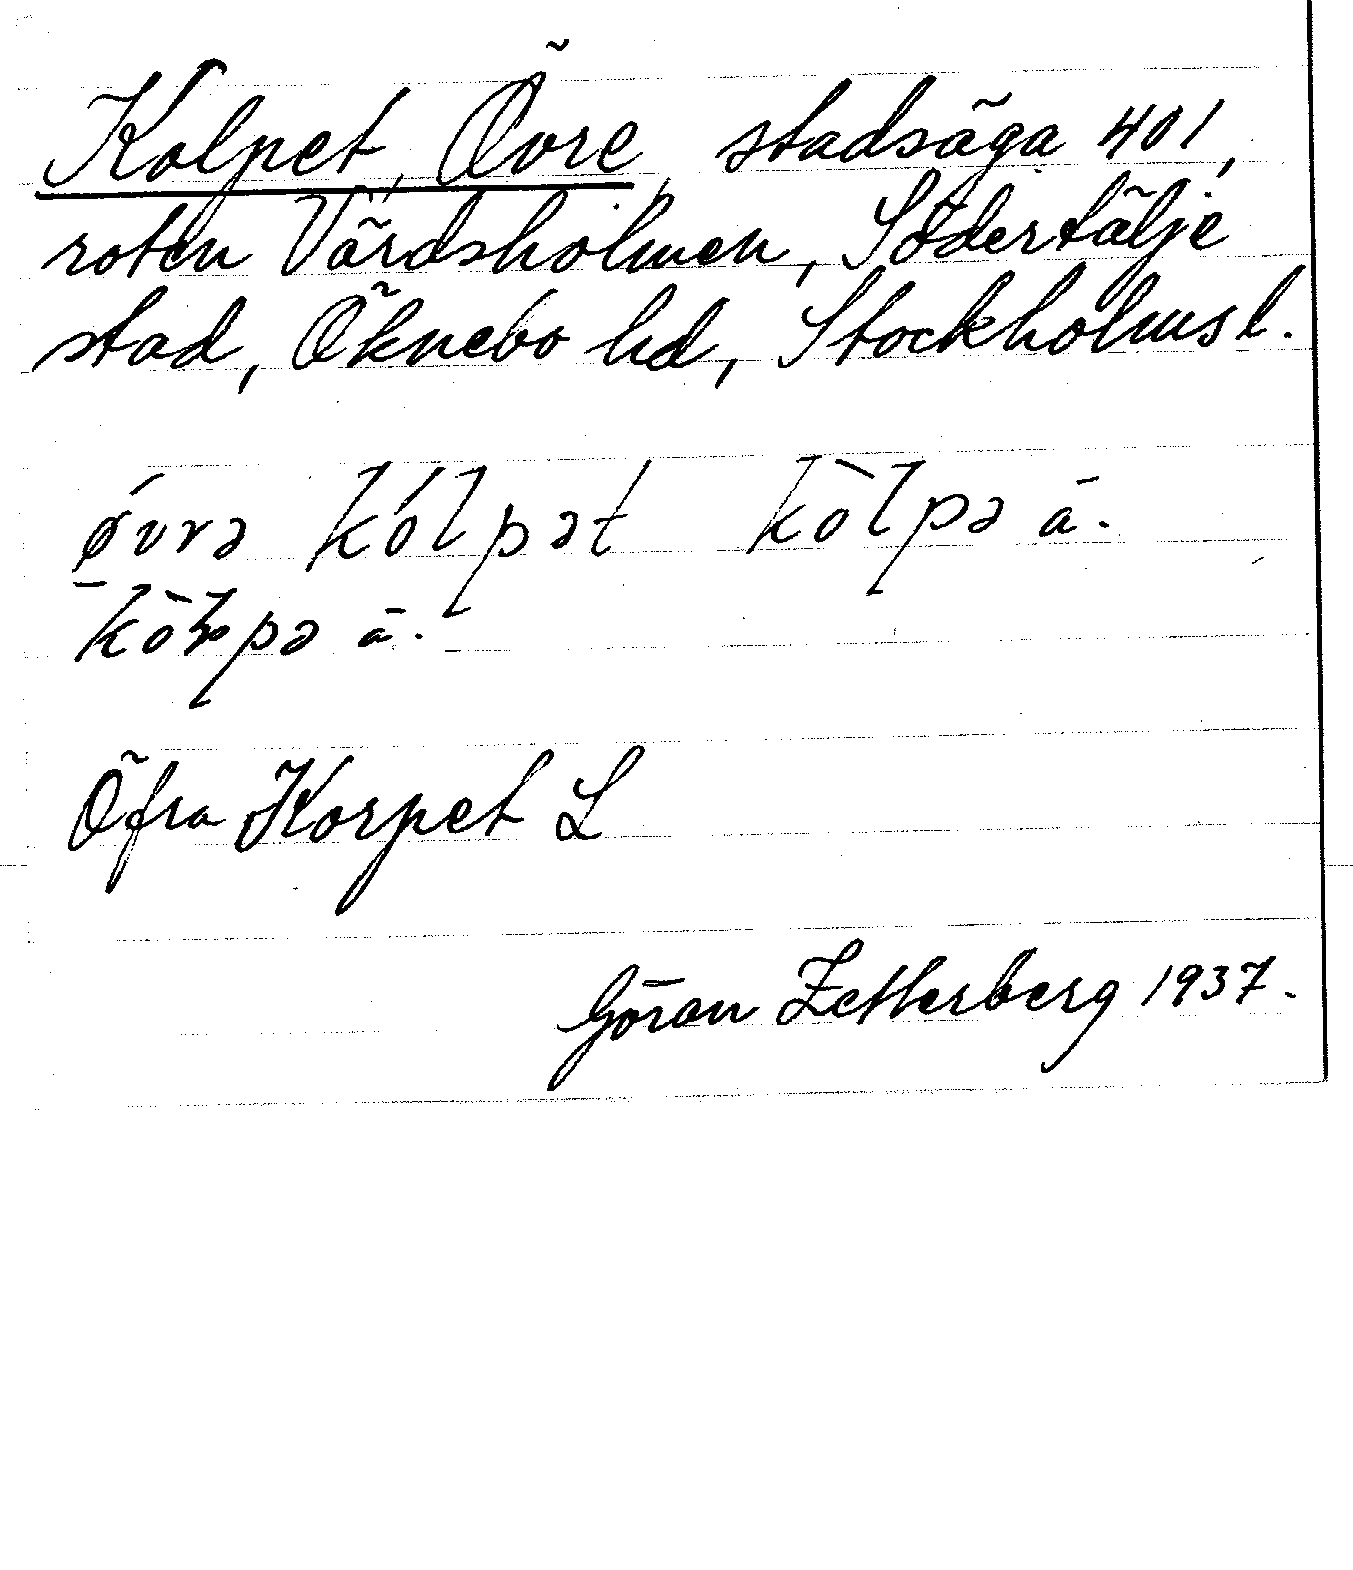 Kolpet, Övre, stadsäga 401,
roten Värdsholmen, Södertälje
stad, Öknebo hd, Stockholms l.
ǿvrə kólpət kòlpə ā.
kòlpə ā.
Öfra Korpet L
Göran Zetterberg 1937.